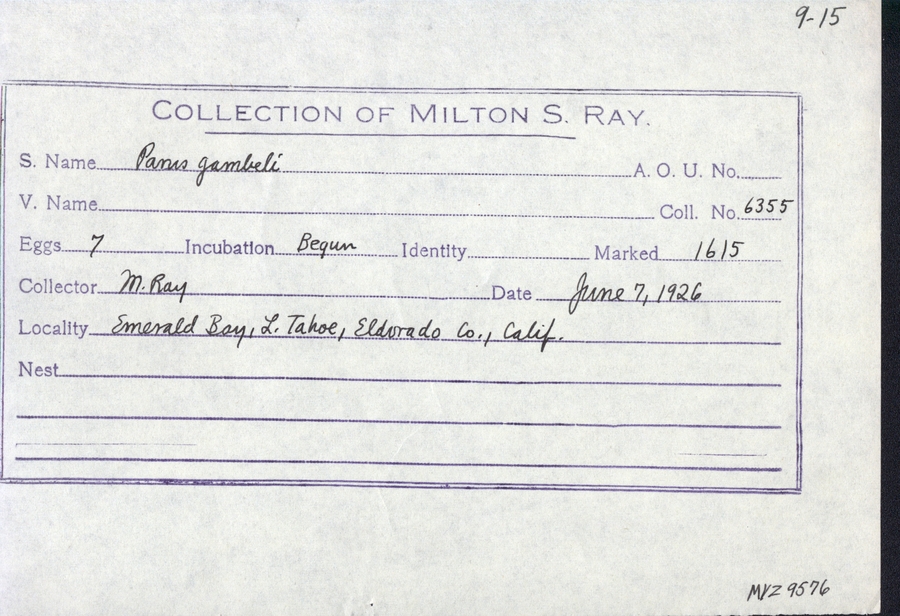 9-15
COLLECTION OF MILTON S. RAY.
S. Name Parus gambeli A. O. U. No.
V. Name Coll. No. 6355
Eggs 7 Incubation Begun Identity Marked 1615
Collector M. Ray Date June 7, 1926
Locality Emerald Bay, L. Tahoe, Eldorado Co., Calif.
Nest
MVZ 9576